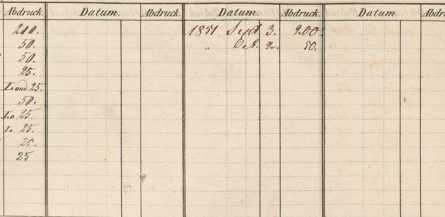 Abdruck. Datum. Abdruck. Datum. Abdruck. Datum. Abdru
200. 1871 Sept 3. 200.
50. " Oct. 2. 50.
50.
25.
25.
50.
25.
25.
25.
25